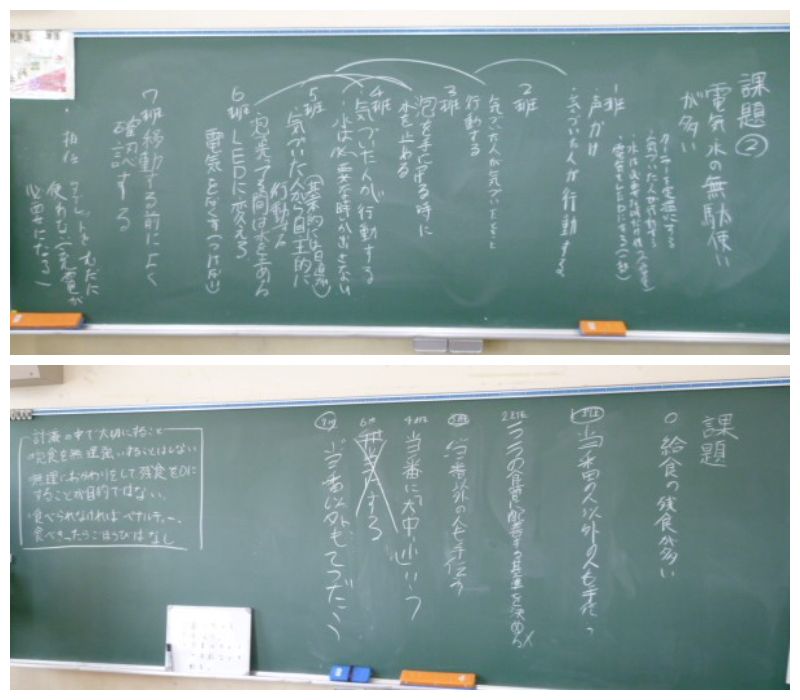 課題②
電気水の無駄使い
が多い
クーラーを適温にする
・気づいた人が行動する
1班
・声かけ
・気づいた人が行動する
2班
気づいた人が気づいたときに
行動する
3班
泡を手に吊る時に
水を止める
4班
気づいた人が行動する
・水は必要な時しか出さない
5班
・気づいた人から自主的に
行動する
(基本的には日直が)
・洗ってる間は水を止める
6班
LEDに変える
電気をけす(つけない)
7班
移動する前によく
確認する
・担任
タブレットをむだに
使わない(充電が
必要になる)
課題
○給食の残食が多い
1班
当番の人以外の人も手伝う
2班
1つ1つの食管に配膳する基準を決める
3班
当番以外の人も手伝う
4班
当番に大中小いう
6班
無にする
7班
当番以外もてつだう
計画の中で大切にすること
・完食を無理強いすることはしない
・無理におかわりをして残食を0に
することが目的ではない。
・食べられなければペナルティー、
食べきったらごほうびはなし